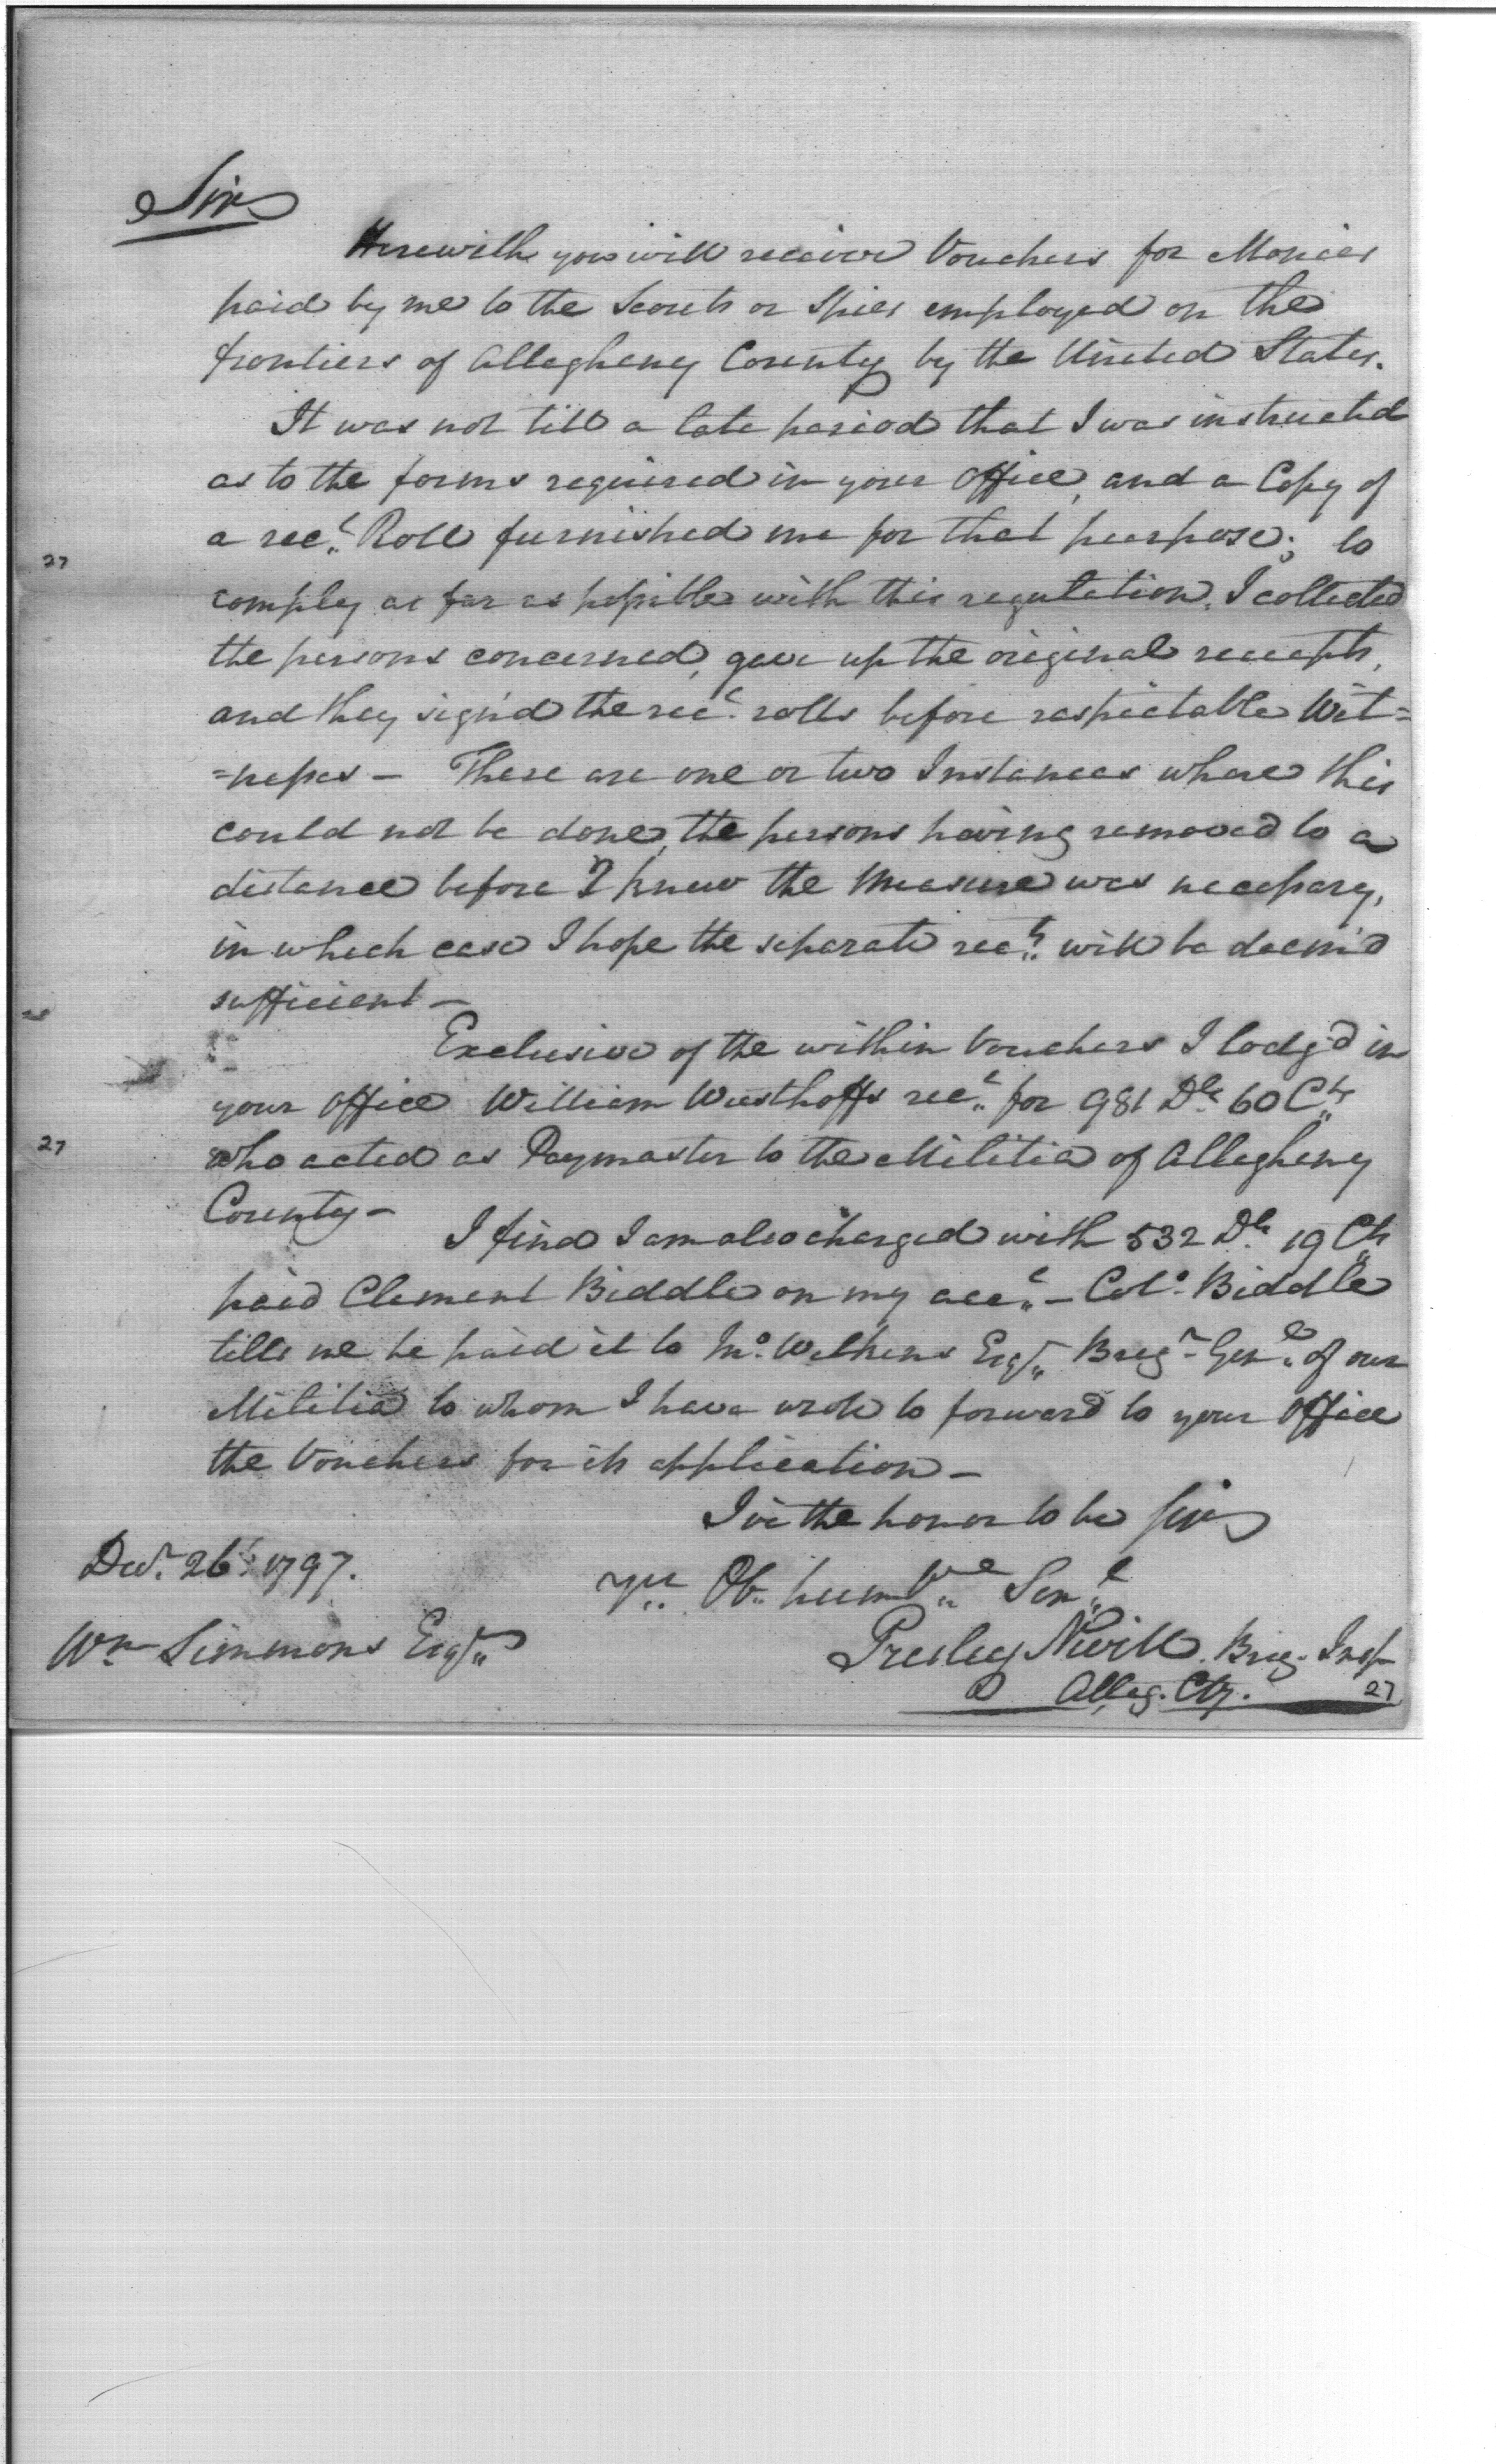 Sir
Herewith you will receive Vouchers for Monies
paid by me to the Scouts or Spies employed on the
frontiers of Allegheny County by the United States.
It was not till a late period that I was instructed
as to the forms required in your Office, and a Copy of
a rec.t Roll furnished me for that purpose; to
27
comply as far as possible with this regulation, I collected
the persons concerned, gave up the original receipts,
and they sign'd the rec.t rolls before respectable Wit=
=nesses — There are one or two Instances where this
could not be done, the persons having removed to a
distance before I knew the measure was necessary,
in which case I hope the separate rec.ts will be deem'd
sufficient —
Exclusive of the within Vouchers I lodg'd in
your Office William Wusthoffs rec.t for 981 Dls 60 Cts
27
who acted as Paymaster to the Militia of Allegheny
County —
I find I am also charged with 532 Dls 19 Cts
paid Clement Biddle on my acc.t — Col.o Biddle
tells me he paid it to Jno. Wilkins Esqr. Brigr. Genl. of our
Militia to whom I have wrote to forward to your Office
the Vouchers for its application —
I've the honor to be Sir
Decr. 26t. 1797.
Yr. Ob. humble Servt
Wm Simmons Esqr.
Presley Nevill. Brig. Insp
Alleg. Cty.
27